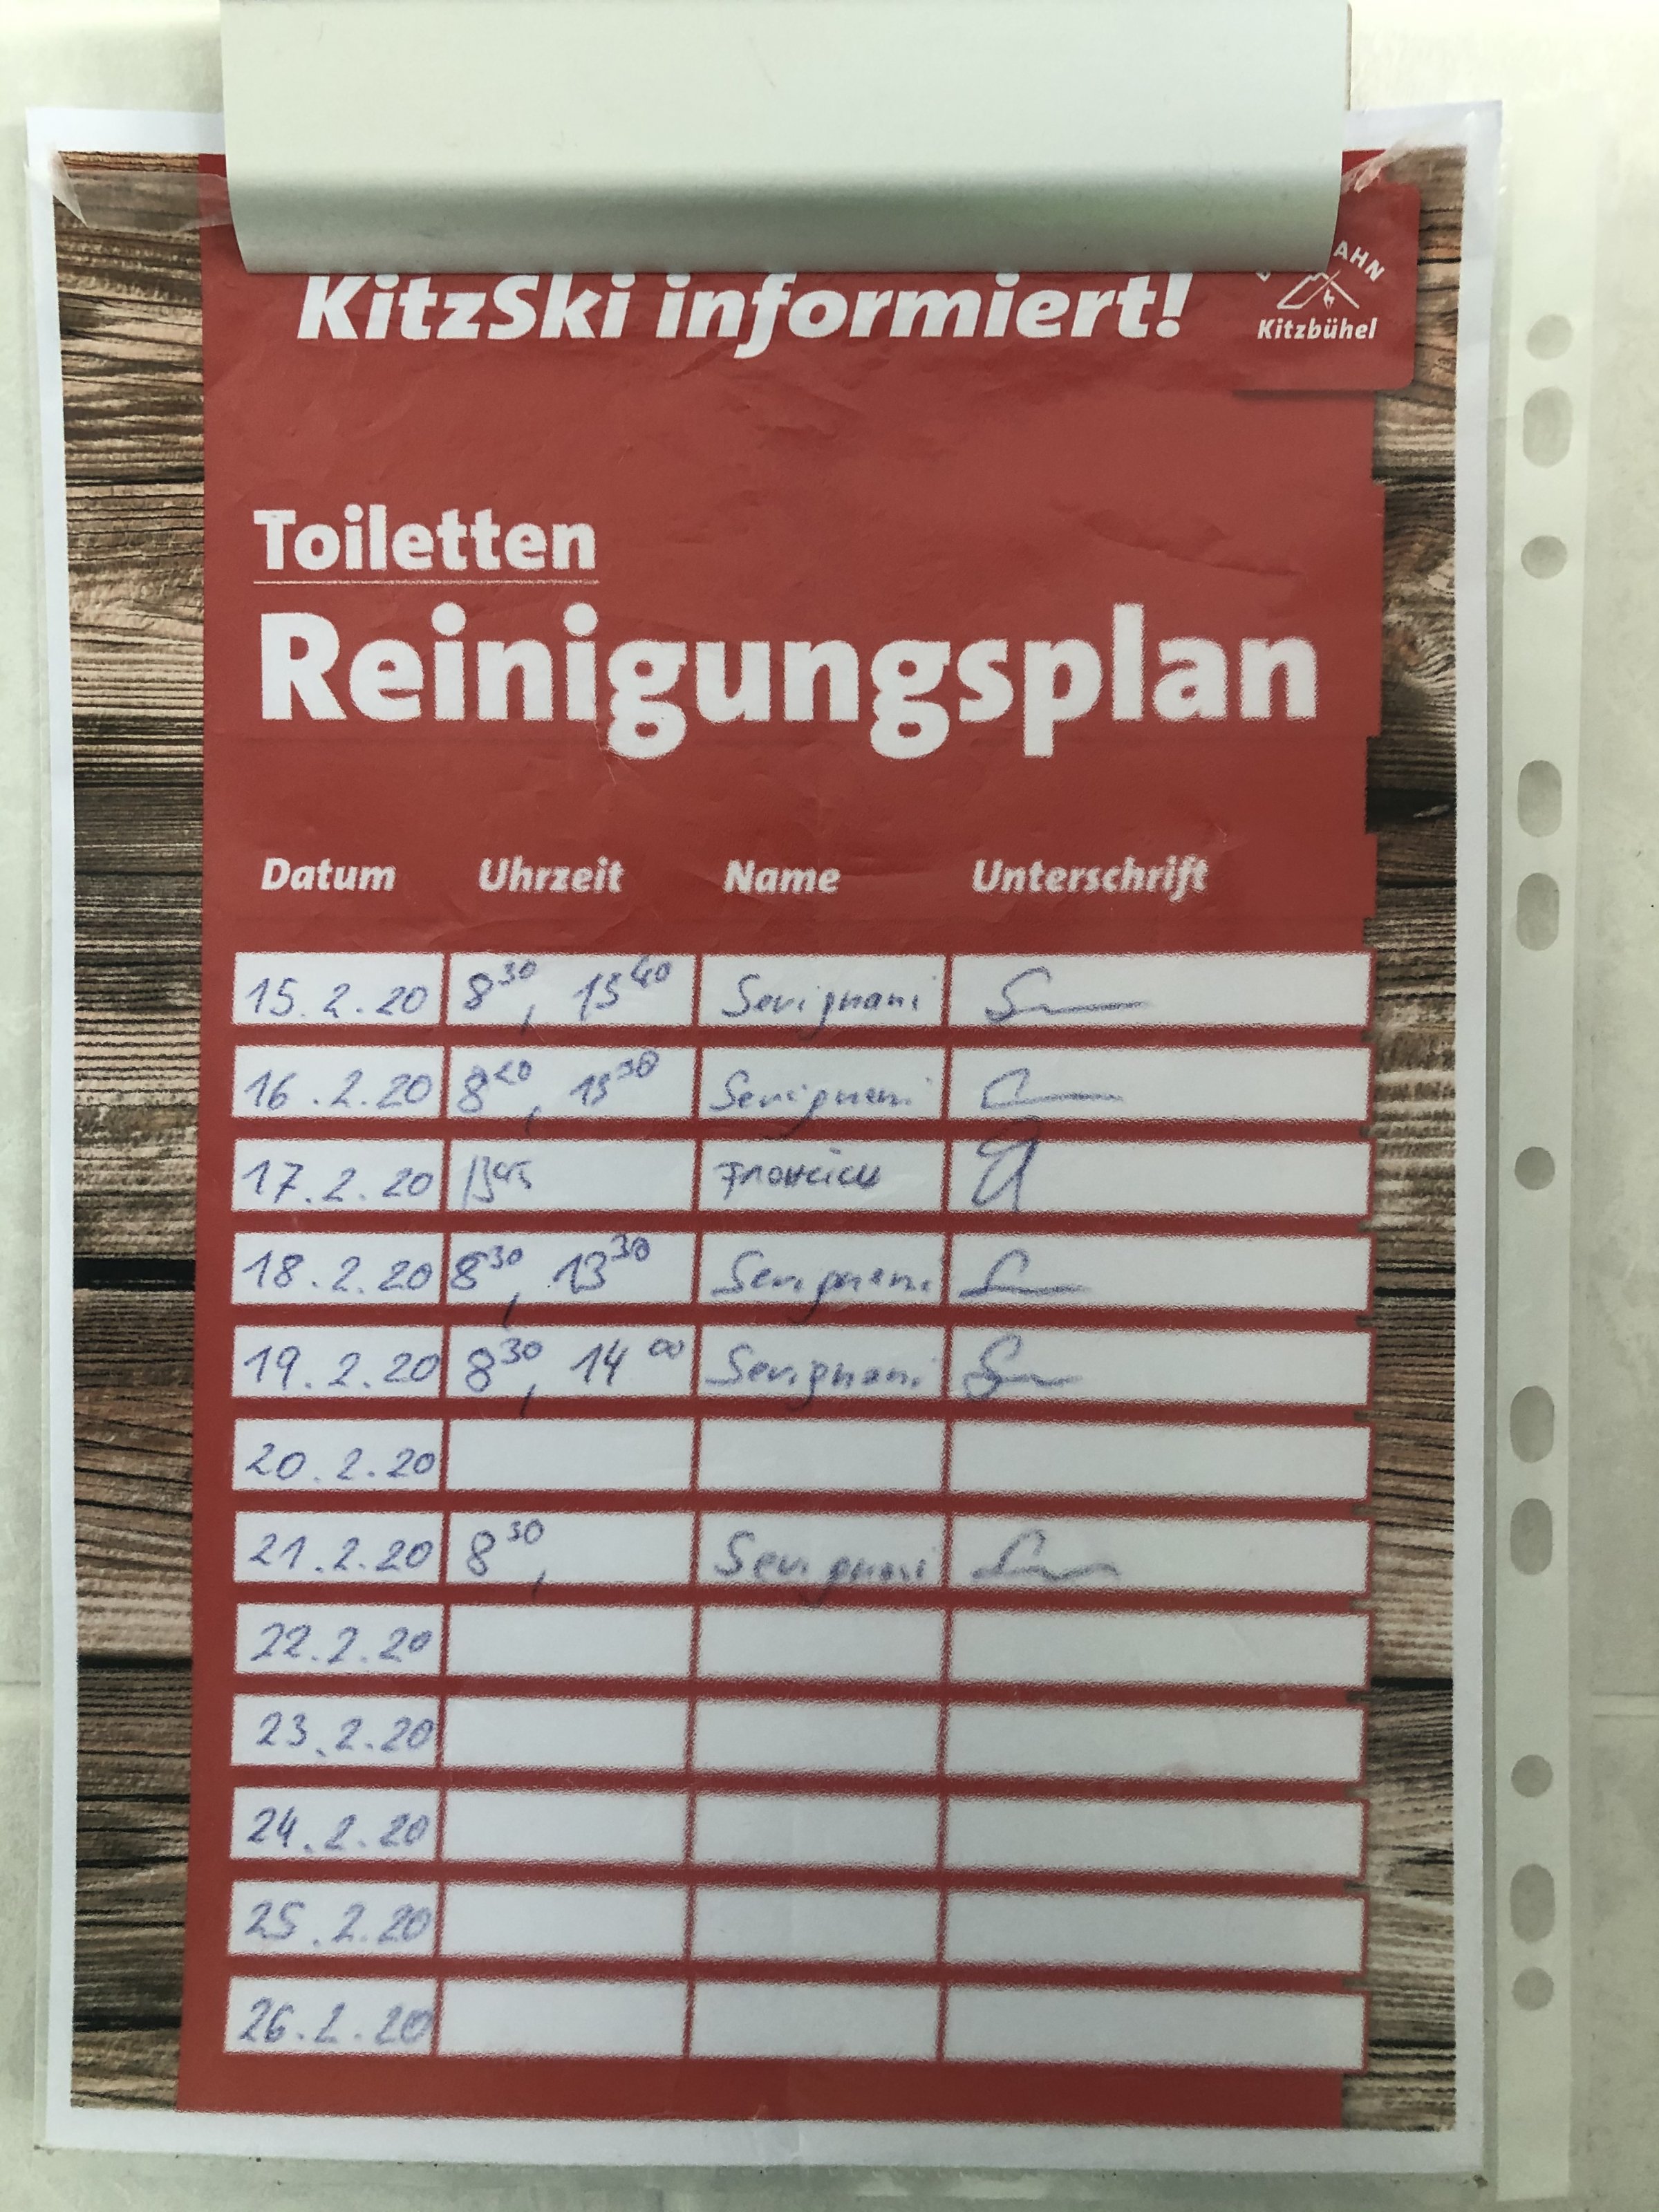 AHN
Kitzbühel
KitzSki informiert!
Toiletten
Reinigungsplan
Datum Uhrzeit Name Unterschrift
15.2.20 8³⁰, 13⁴⁰ Sevignani
16.2.20 8²⁰, 13³⁰ Sevignani
17.2.20 13⁴⁵
18.2.20 8³⁰, 13³⁰ Sevignani
19.2.20 8³⁰, 14⁰⁰ Sevignani
20.2.20
21.2.20 8³⁰, Sevignani
22.2.20
23.2.20
24.2.20
25.2.20
26.2.20